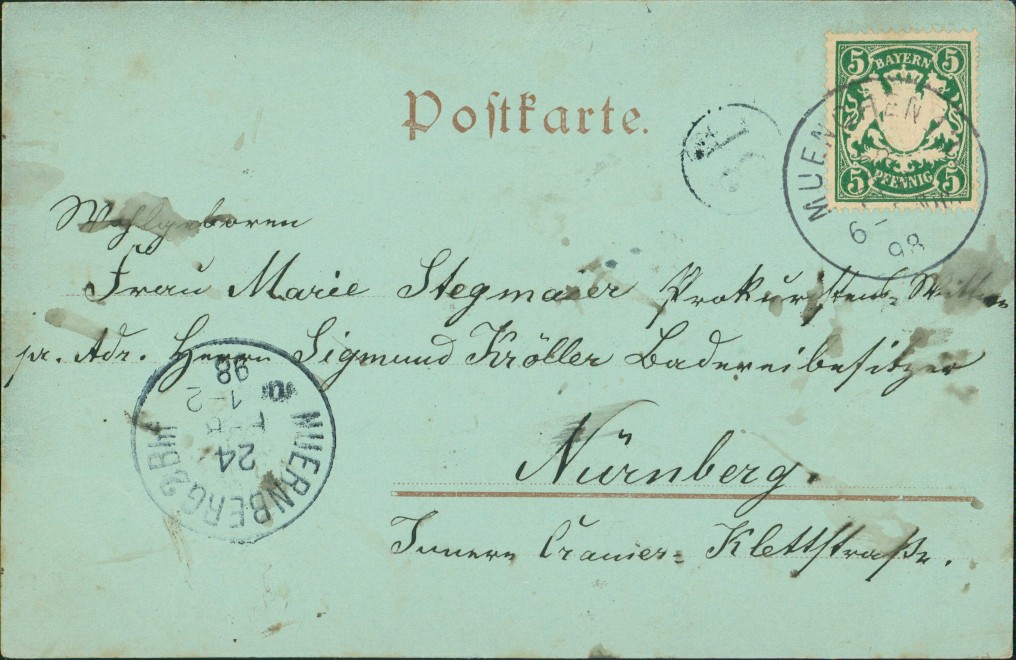 5 BAYERN 5
5 PFENNIG 5
MUEN HEN
6-
98
Postkarte.
Wohlgeboren
Frau Marie Stegmaier Prokuristens-Wittwe
pr. Adr. Herrn Sigmund Kröller Badereibesitzer
Nürnberg.
Innere Cramer-Klettstraße.
NUERNBERG 2 Bhf
24
1-2
98